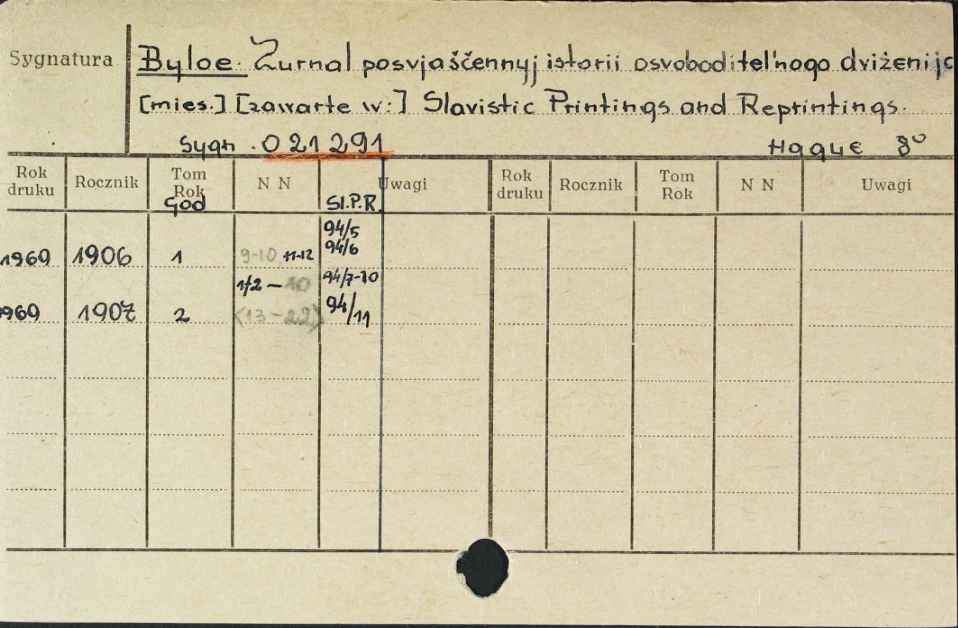 Sygnatura Byloe. Žurnal posvjaščennyj istorii osvoboditel'nogo dviżenija
[mies.] [zawarte w:] Slavistic Printings and Reprintings.
Sygn. 021291 Hague 8°
Rok druku Rocznik Tom Rok N N Uwagi Rok druku Rocznik Tom Rok N N Uwagi
God Sl.P.R.
94/5
1969 1906 1 9-10 11-12 94/6
1/2 - 10 94/7-10
1969 1907 2 (13-22) 94/11